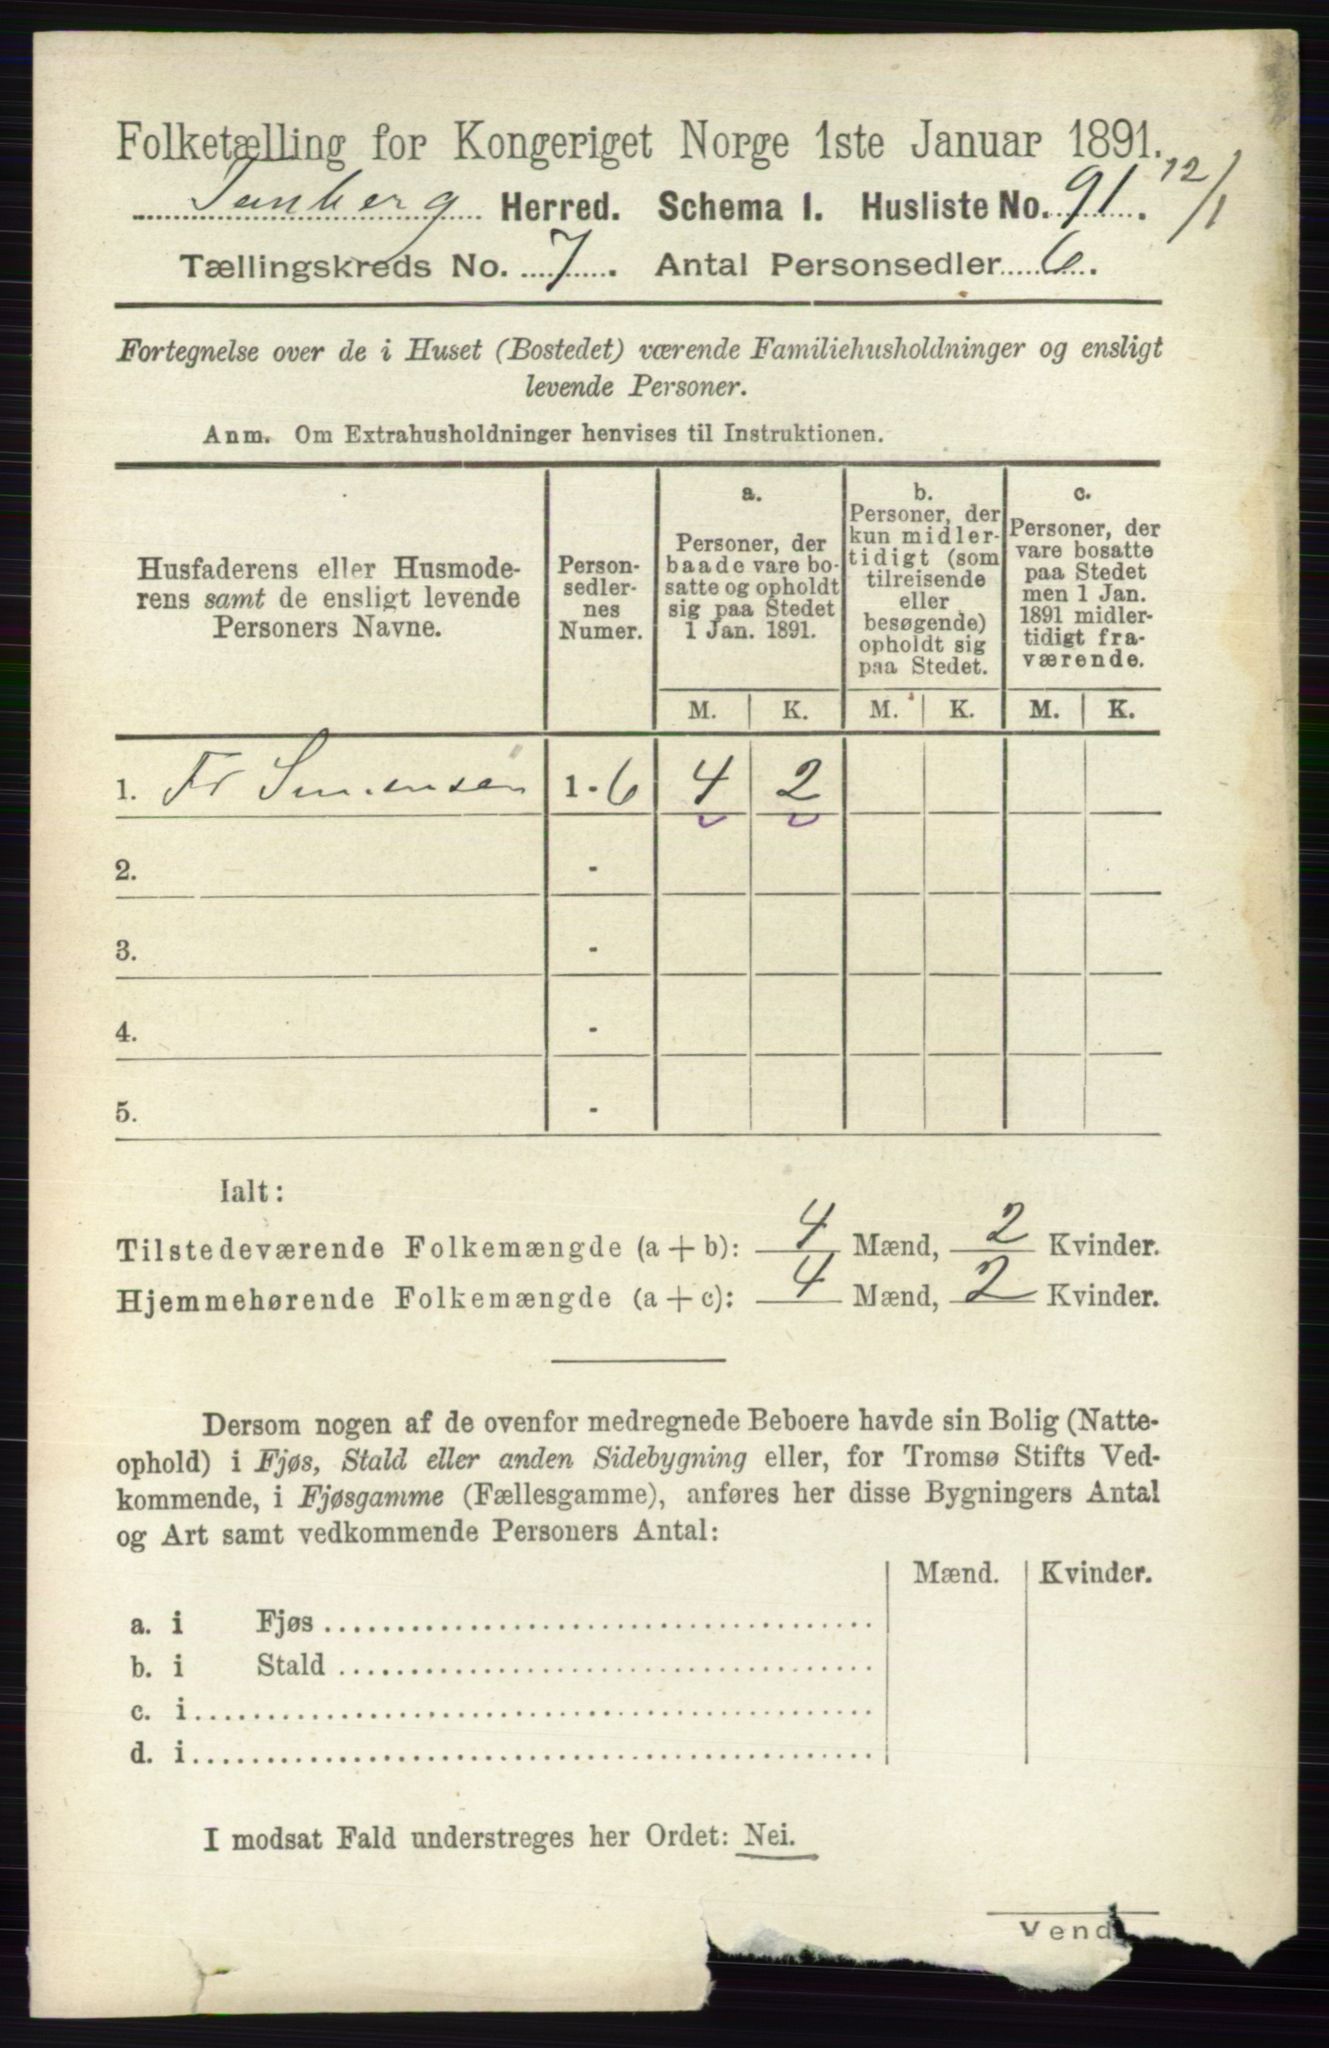 Folketælling for Kongeriget Norge 1ste Januar 1891.
Tunberg Herred. Schema I. Husliste No. 91. 12/1
Tællingskreds No. 7. Antal Personsedler 6.
Fortegnelse over de i Huset (Bostedet) værende Familiehusholdninger og ensligt
levende Personer.
Anm. Om Extrahusholdninger henvises til Instruktionen.
Husfaderens eller Husmode-
rens samt de ensligt levende
Personers Navne.
Person-
sedler-
nes
Numer.
a.
Personer, der
baade vare bo-
satte og opholdt
sig paa Stedet
1 Jan. 1891.
b.
Personer, der
kun midler-
tidigt (som
tilreisende
eller
besøgende)
opholdt sig
paa Stedet.
c.
Personer, der
vare bosatte
paa Stedet
men 1 Jan.
1891 midler-
tidigt fra-
værende.
M. K. M. K. M. K.
1. Fr 1-6 4 2
2. -
3. -
4. -
5. -
Ialt:
Tilstedeværende Folkemængde (a+b): 4 Mænd, 2 Kvinder.
Hjemmehørende Folkemængde (a+c): 4 Mænd, 2 Kvinder.
Dersom nogen af de ovenfor medregnede Beboere havde sin Bolig (Natte-
ophold) i Fjøs, Stald eller anden Sidebygning eller, for Tromsø Stifts Ved-
kommende, i Fjøsgamme (Fællesgamme), anføres her disse Bygningers Antal
og Art samt vedkommende Personers Antal:
Mænd. Kvinder.
a. i Fjøs
b. i Stald
c. i
d. i
I modsat Fald understreges her Ordet: Nei.
Vend